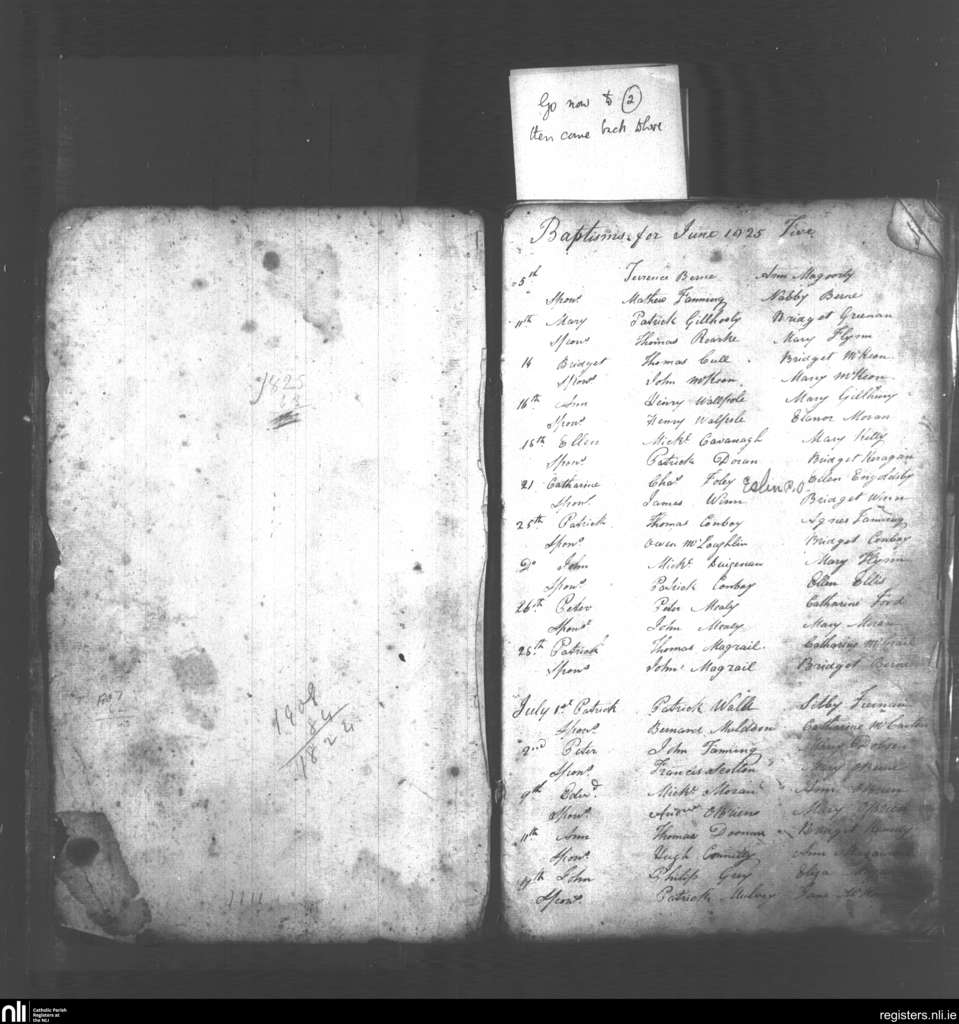 Go now to 2
then come back to here
1825
1908
84
1824
Baptisms for June 1825 Five
5th Terrence Berne Ann Magoorty
Spons Mathew Fanning Nabby Berne
11th Mary Patrick Gillhooly Bridget Greenan
Spons Thomas Roarke Mary Flynn
14 Bridget Thomas Cull Bridget McKeon
Spons John McKeon Mary McKeon
16th Ann Henry Wallpole Mary
Spons Henry Walpole Elanor Moran
18th Ellen Michl Cavanagh Mary Kelly
Spons Patrick Doran Bridget Keragan
21 Catharine Chas Foley Ellen
Spons James Winn Bridget Winn
25th Patrick Thomas Conboy Agnes Fanning
Spons Owen McLoughlin Bridget Conboy
Do John Michl Duigenan Mary Flynn
Spons Patrick Conboy Ellen Ellis
26th Peter Peter Mealy Catharine Ford
Spons John Mealy Mary Moran
28th Patrick Thomas Magrail Catharine McGrail
Spons John Magrail Bridget
July 1st Patrick Patrick Walls Sibby
Spons Bernard Muldoon Catharine
2nd Peter John Fanning Mary
Spons Francis Mary
9th Edwd Michl Moran Ann OBrien
Spons Andw OBriens Mary OBrien
11th Ann Thomas Bridget
Spons Hugh Ann
17th John Philip Guy Eliza
Spons Patrick Mulvey Jane
nli
Catholic Parish
Registers at
the NLI
registers.nli.ie